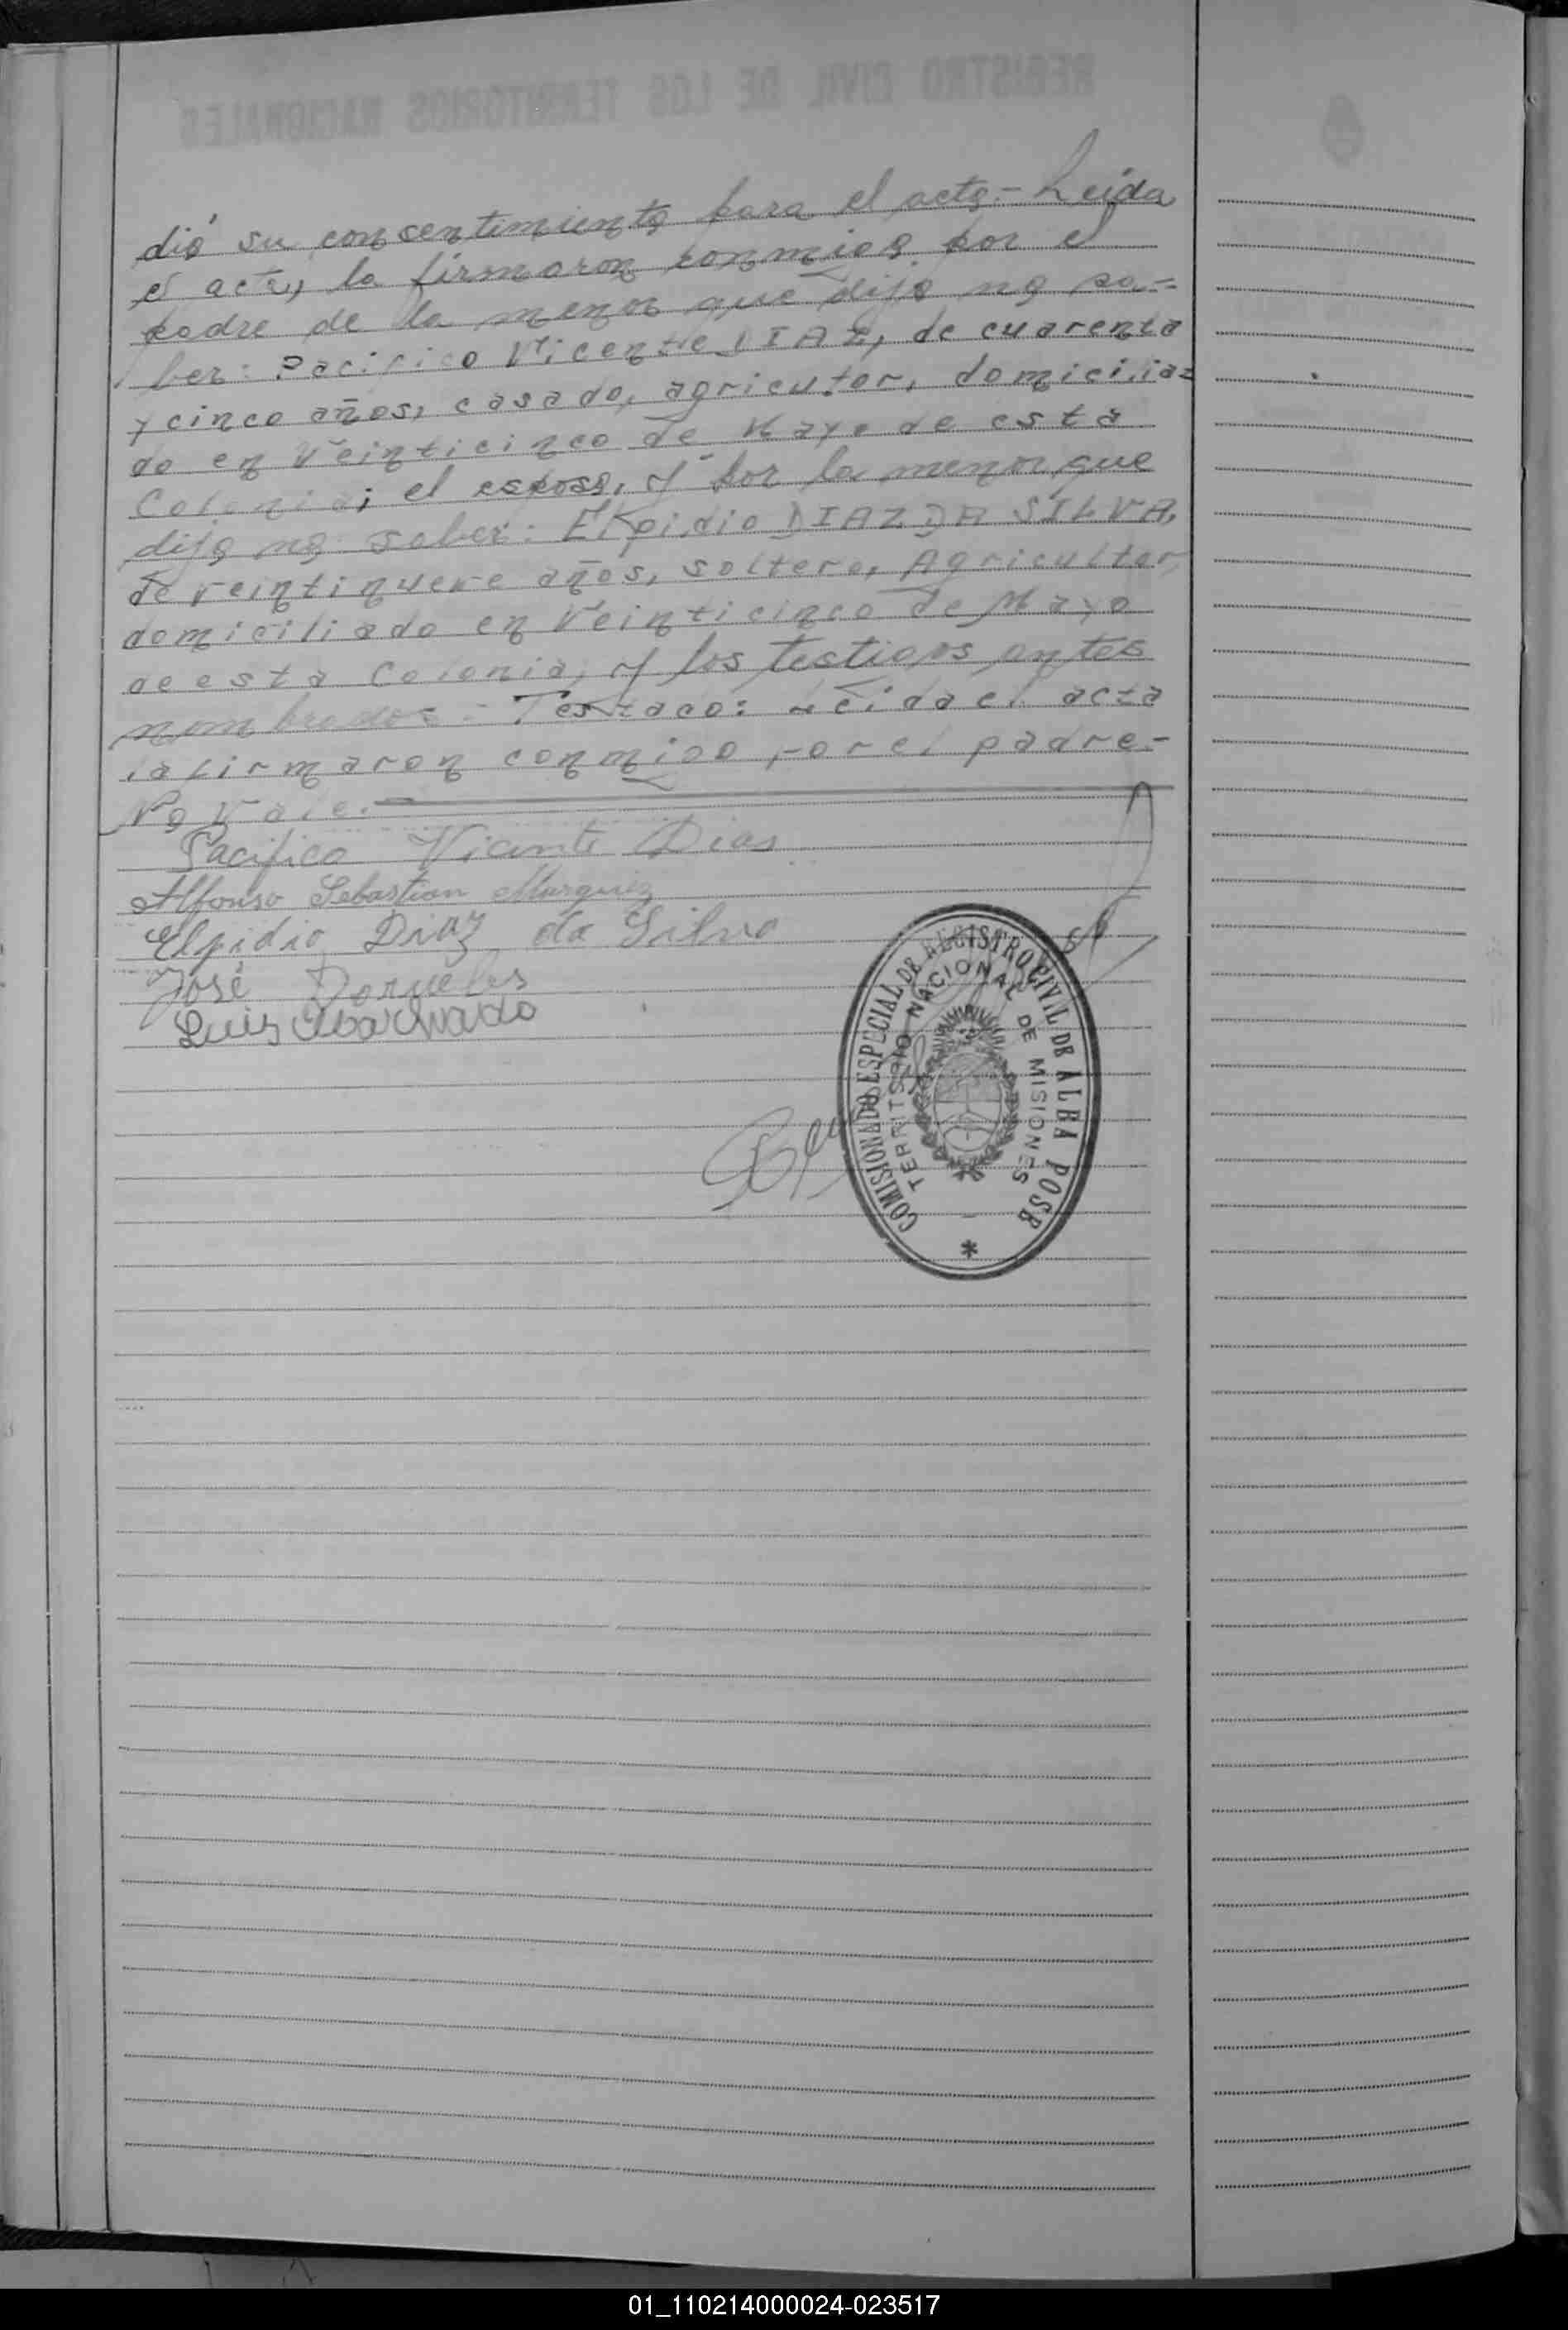 REGISTRO CIVIL DE LOS TERRITORIOS NACIONALES
dió su consentimiento para el acto.- Leida
el acta, la firmaron conmigo por el
padre de la menor que dijo no sa=
ber: Pacifico Vicente DIAZ, de cuarenta
y cinco años, casado, agricutor, domicilia=
do en Veinticinco de Mayo de esta
Colonia; el esposo, y por la menor que
dijo no saber: Elpidio DIAZ DA SILVA,
de veintinueve años, soltero, Agricultor,
domiciliado en Veinticinco de Mayo
de esta Colonia, y los testigos antes
nombrados.- Testado: Leida el acta
la firmaron conmigo por el padre-
No Vale.
Pacifico Vicente Dias
Alfonso Sebastian Marquez
Elpidio Diaz da Silva
José Dorneles
Luis Machado
COMISIONADO ESPECIAL DE REGISTRO CIVIL DE ALBA POSE
TERRITORIO NACIONAL DE MISIONES
01_110214000024-023517